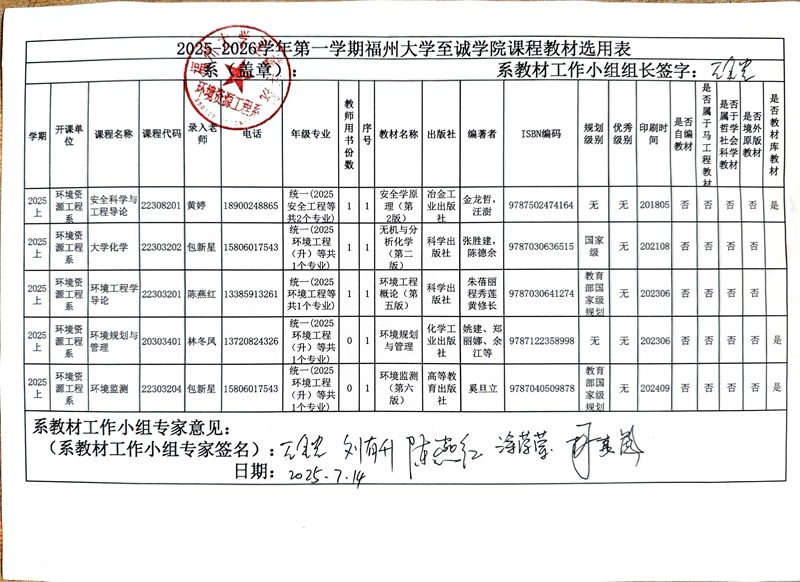 2025-2026学年第一学期福州大学至诚学院课程教材选用表
系（盖章）： 系教材工作小组组长签字：
环境资源工程系
学期 开课单位 课程名称 课程代码 录入老师 电话 年级专业 教师用书份数 序号 教材名称 出版社 编著者 ISBN编码 规划级别 优秀级别 印刷时间 是否自编教材 是否属于马工程教材 是否属于哲学社会科学教材 是否境外原版教材 是否教材库教材
2025上 环境资源工程系 安全科学与工程导论 22308201 黄婷 18900248865 统一(2025安全工程等共2个专业) 1 1 安全学原理（第2版） 冶金工业出版社 金龙哲，汪澍 9787502474164 无 无 201805 否 否 否 否 是
2025上 环境资源工程系 大学化学 22303202 包新星 15806017543 统一(2025环境工程（升）等共1个专业) 1 1 无机与分析化学（第二版） 科学出版社 张胜建，陈德余 9787030636515 国家级 无 202108 否 否 否 否
2025上 环境资源工程系 环境工程学导论 22303201 陈燕红 13385913261 统一(2025环境工程等共1个专业) 1 1 环境工程概论（第五版） 科学出版社 朱蓓丽 程秀莲 黄修长 9787030641274 教育部国家级规划 无 202306 否 否 否 否
2025上 环境资源工程系 环境规划与管理 20303401 林冬凤 13720824326 统一(2025环境工程（升）等共1个专业) 0 1 环境规划与管理 化学工业出版社 姚建、郑丽娜、余江等 9787122358998 无 无 202306 否 否 否 否 是
2025上 环境资源工程系 环境监测 22303204 包新星 15806017543 统一(2025环境工程（升）等共1个专业) 0 1 环境监测（第六版） 高等教育出版社 奚旦立 9787040509878 教育部国家级规划 无 202409 否 否 否 否 是
系教材工作小组专家意见：
（系教材工作小组专家签名）： 刘有升 陈燕红
日期：2025.7.14